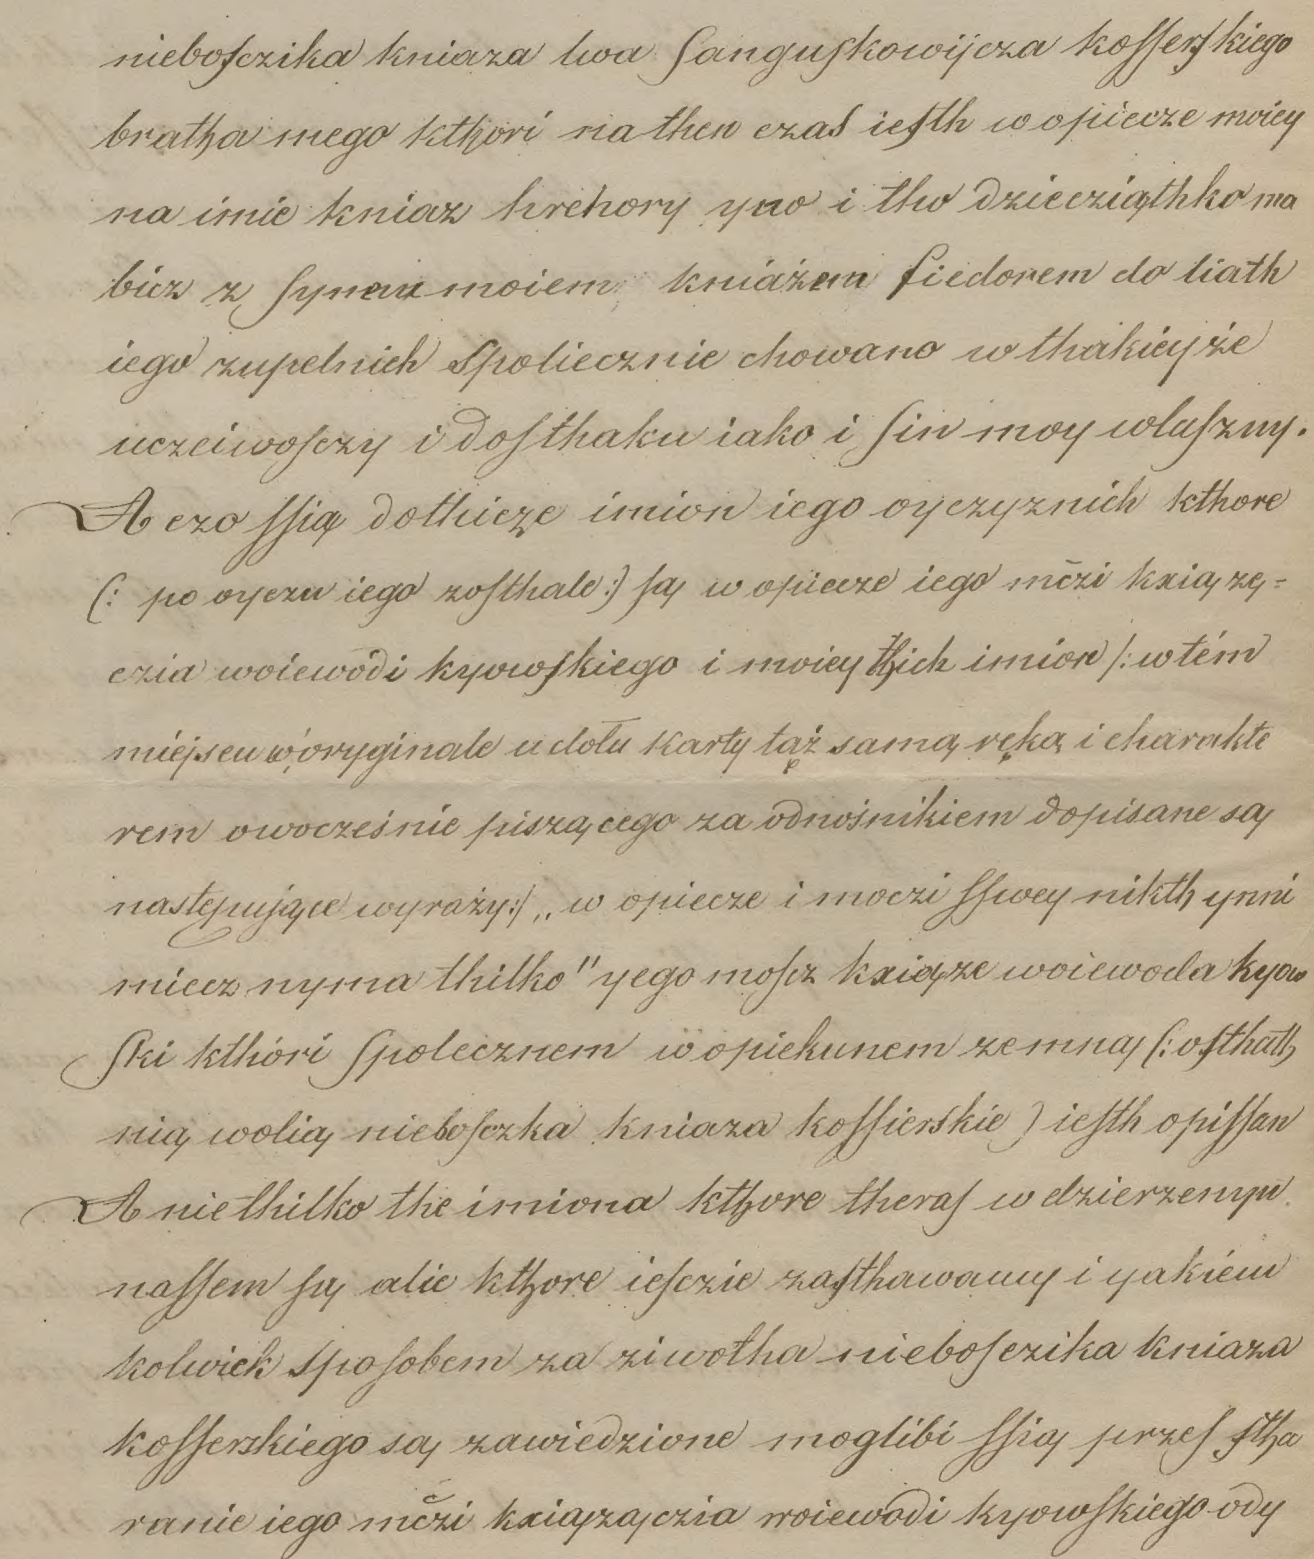 nieboſczika kniaza lwa ſanguſkowijcza koſſerſkiego
bratha mego kthori na then czas ieſth w opiecze moiey
na imie kniaz hrehory yno i tho dziecziąthko ma
bicz z ſynem moiem kniázem fiedorem do liath
iego zupelnich spoliecznie chowano w thakieyże
uczciwoſczy i doſthaku iako i ſin moy wlaſzny.
A czo ſſią dothicze imion iego oyczyznich kthore
(: po oyczu iego zoſthale:) ſą w opiecze iego mc̃zi kxiązę=
czia woiewódi kyowſkiego i moiey thich imion /: w tém
miéjscu w oryginale u dołu karty tąż samą ręką i charakte
rem owocześnie piszącego za odnośnikiem dopisane są
następujące wyrazy:/ „w opiecze i moczi ſſwey nikth ynni
miecz nyma thilko" yego moſcz kxiąze woiewoda kyow
ſki kthóri ſpolecznem w opiekunem zemną (: oſthath
nią wolią nieboſczka kniaza koſſierskie) ieſth opiſſan
A nie thilko the imiona kthore theraſ w dzierzemyu
naſſem ſą alie kthore ieſczie zaſthawamy i yakiém
kolwiek spoſobem za ziwotha nieboſczika kniaza
koſſerskiego są zawiedzione moglibi ſſią przeſ ſtha
ranie iego mc̃zi kxiązączia woiewodi kyowſkiego ody